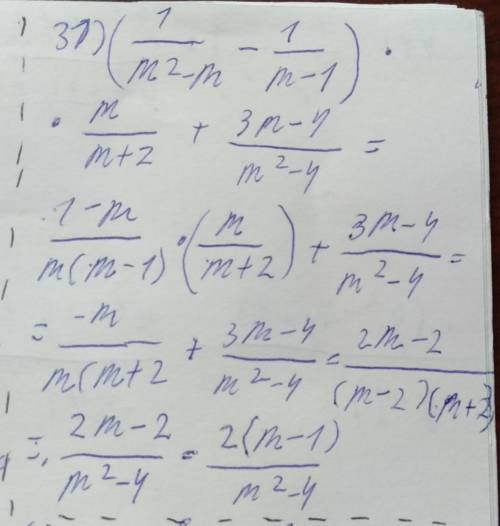 31) (1/(m²-m) - 1/(m-1)) ·
· m/(m+2) + (3m-4)/(m²-4) =
(1-m)/(m(m-1)) · (m/(m+2)) + (3m-4)/(m²-4) =
= -m/(m(m+2 + (3m-4)/(m²-4) = (2m-2)/((m-2)(m+2)
= (2m-2)/(m²-4) = 2(m-1)/(m²-4)